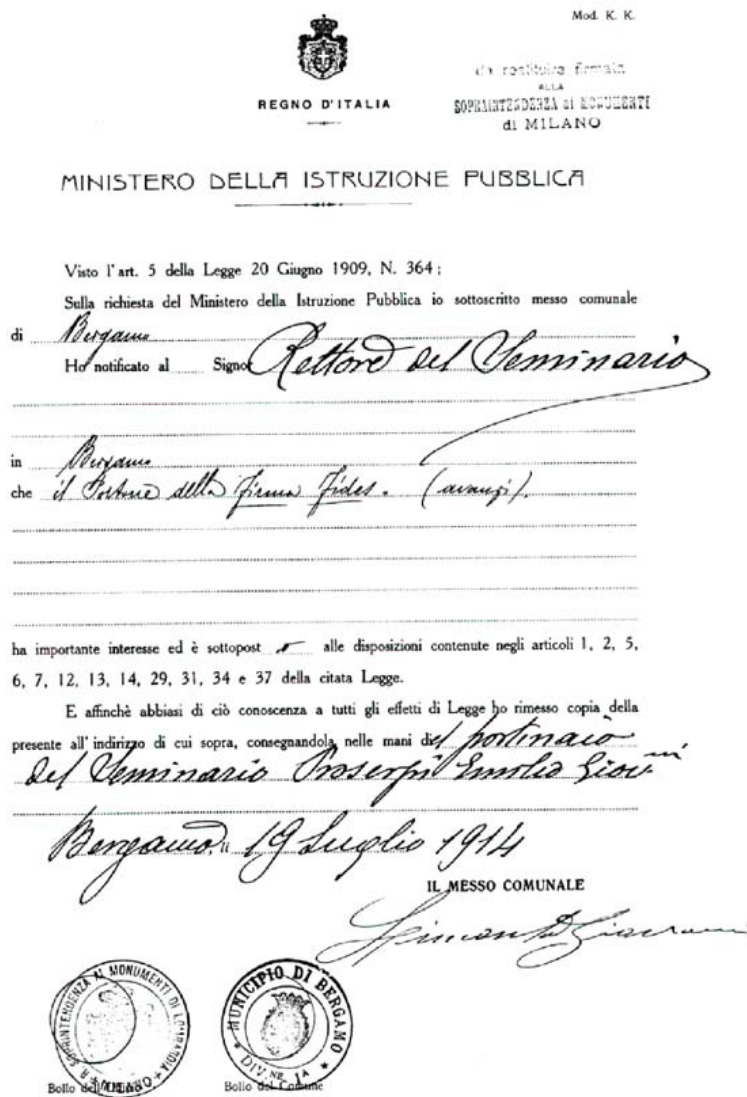 Mod. K. K.
da restituire firmata
ALLA
SOPRAINTENDENZA ai MONUMENTI
di MILANO
REGNO D'ITALIA
MINISTERO DELLA ISTRUZIONE PUBBLICA
Visto l'art. 5 della Legge 20 Giugno 1909, N. 364;
Sulla richiesta del Ministero della Istruzione Pubblica io sottoscritto messo comunale
di Bergamo
Ho notificato al Signor Rettore del Seminario
in Bergamo
che il della firma fides. (avanzi).
ha importante interesse ed è sottopost o alle disposizioni contenute negli articoli 1, 2, 5,
6, 7, 12, 13, 14, 29, 31, 34 e 37 della citata Legge.
E affinchè abbiasi di ciò conoscenza a tutti gli effetti di Legge ho rimesso copia della
presente all'indirizzo di cui sopra, consegnandola nelle mani del portinaio
del Seminario Emilio
Bergamo, li 19 Luglio 1914
IL MESSO COMUNALE
R. SOPRINTENDENZA AI MONUMENTI DI LOMBARDIA
MILANO
MUNICIPIO DI BERGAMO
DIV. NE 1A
Bollo dell'Ufficio
Bollo del Comune